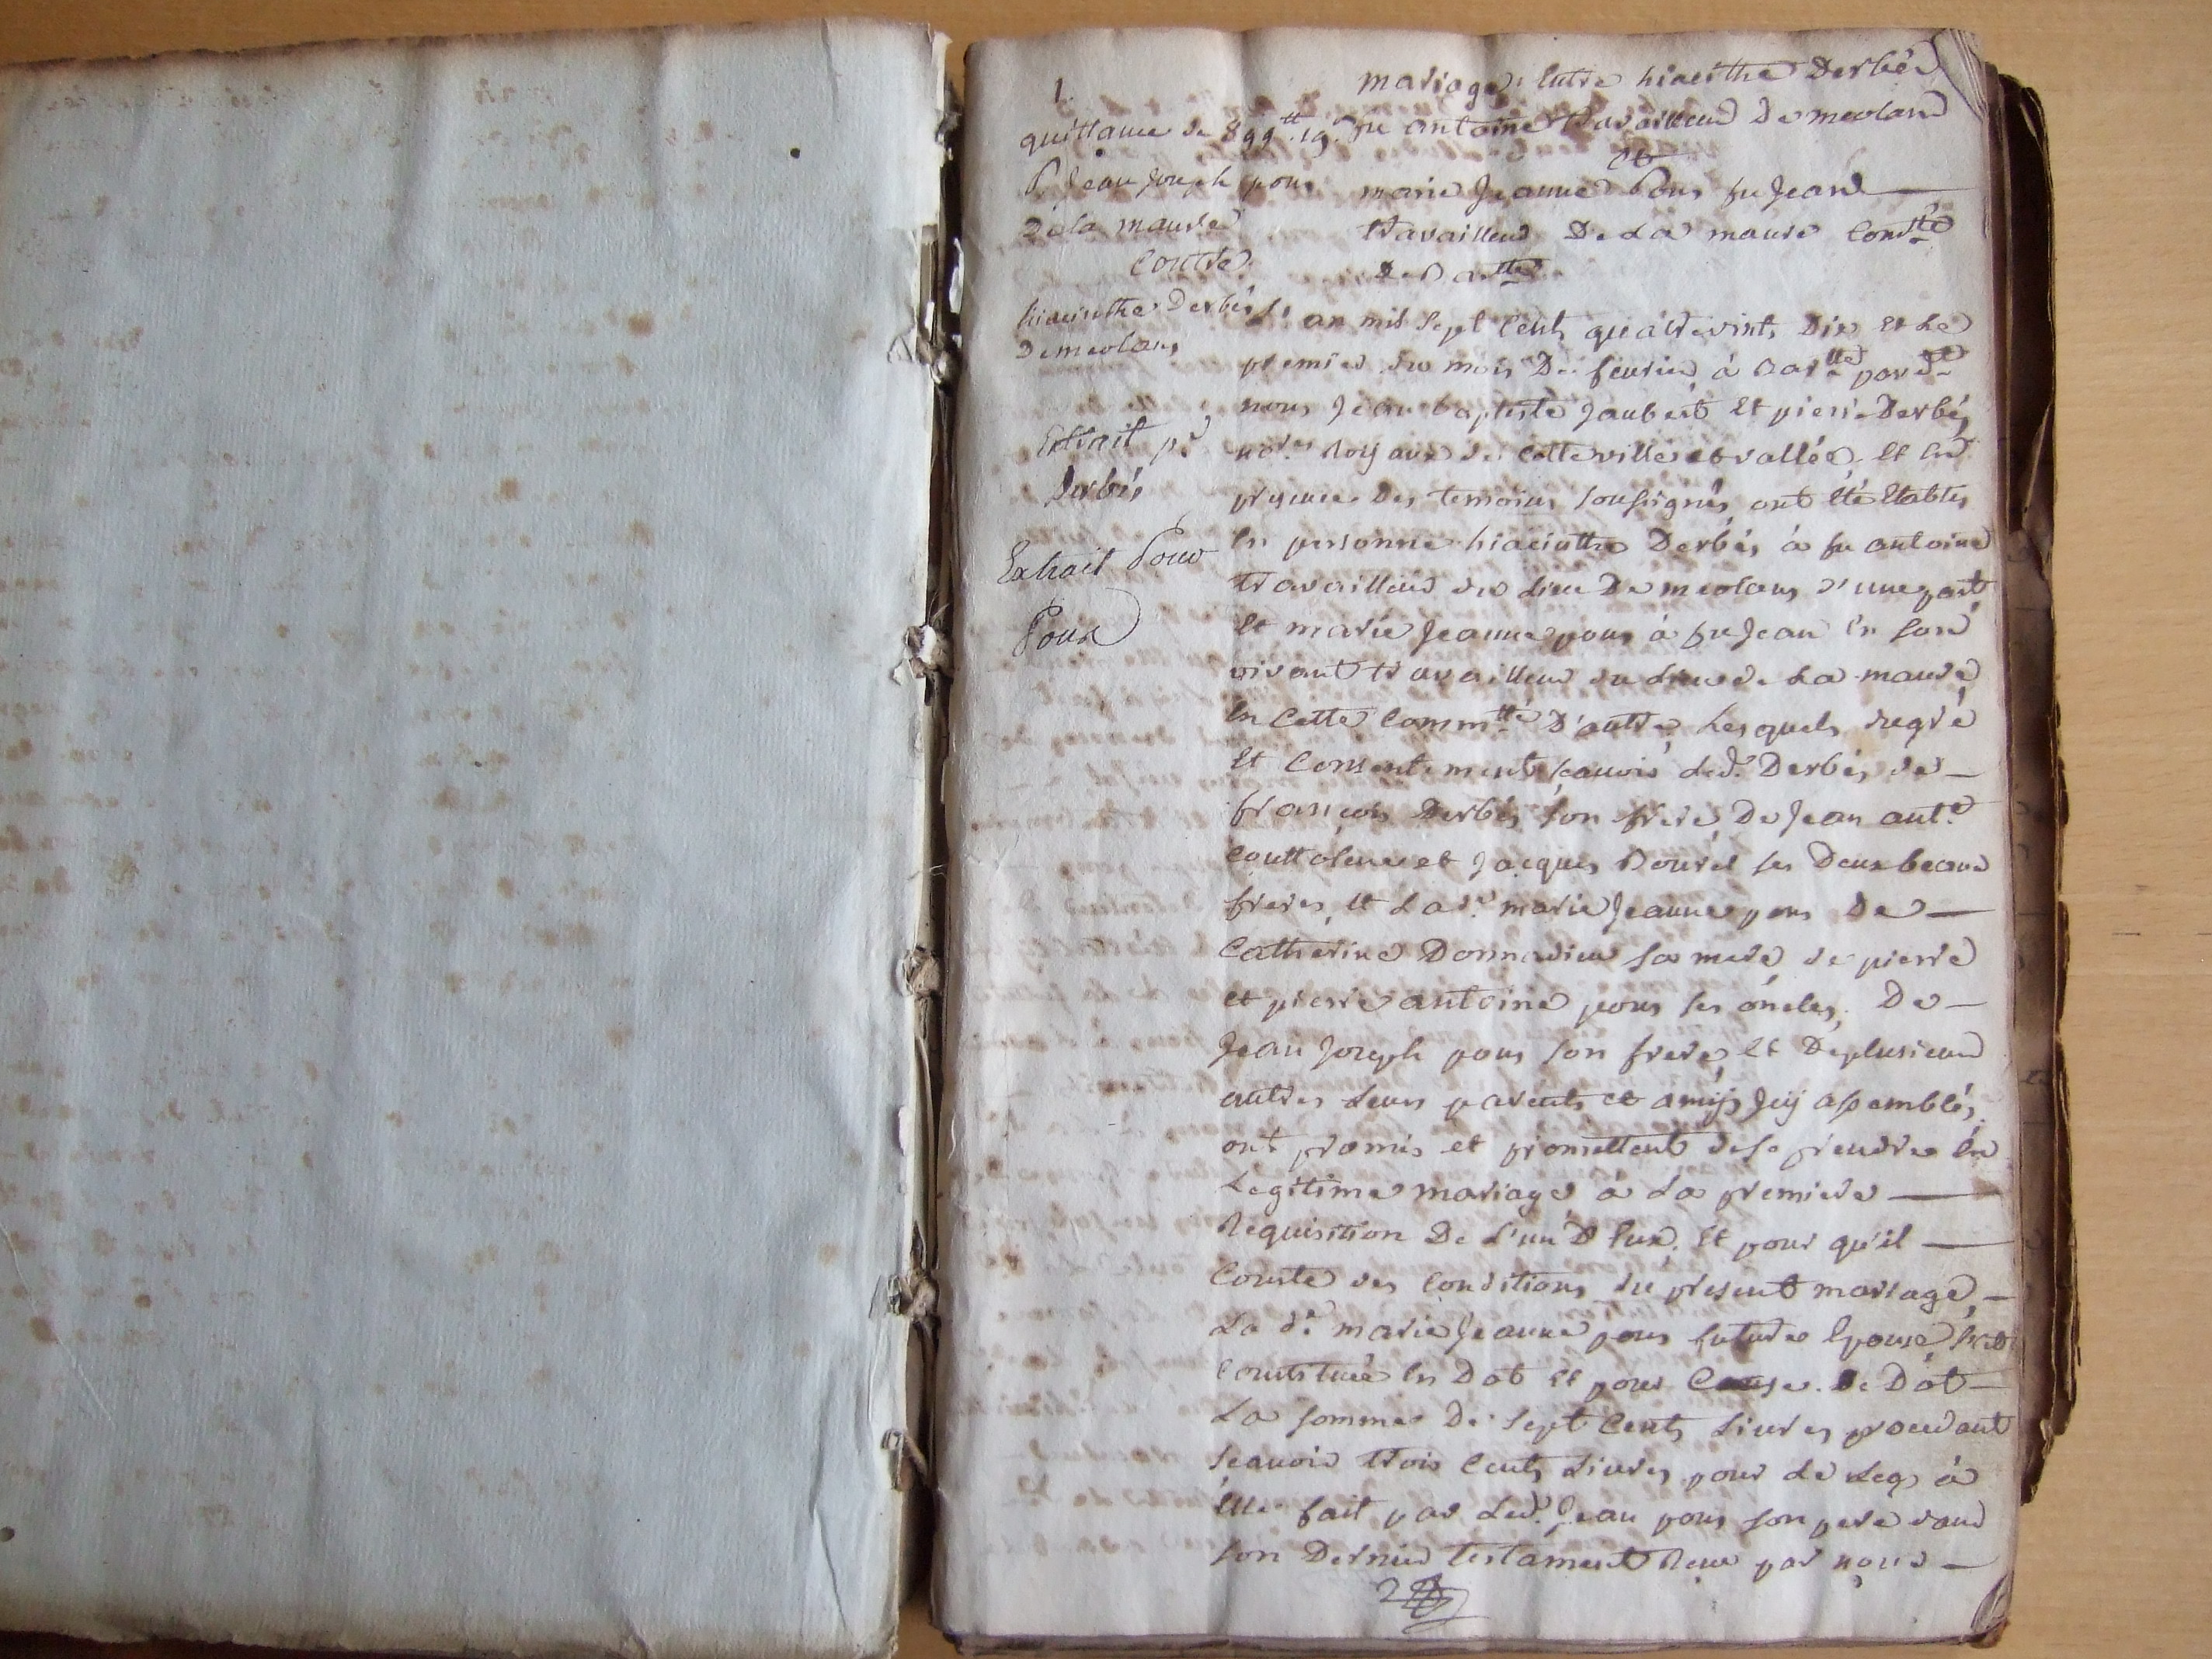 1.
quittance de 899tt.19s
p. Jean Joseph pons
De la maure
Contre
hiacinthe Derbés
De meolans
Extrait pr
Derbés
Extrait Pour
Pons
mariage Entre hiacinthe Derbés
fu antoine travailleur De meolans
et
marie Jeanne Pons fu Jean
travailleur De La maure Comtté
De Bartte
L'an mil Sept Cents quatrevints Dix et Le
premier du mois De fevrier à Bartte pard.t
nous Jean baptiste Jaubert et pierre Derbés
nores Royaux de Cette ville et vallée, et En
presence Des temoins Soussignés ont été Etablis
En personne hiacinthe Derbés à fu antoine
travailleur du Lieu De meolans d'une part
et marie Jeanne pons à fu Jean En Son
vivant travailleur du Lieu de La maure
En Cette Commtté D'autre, Lesquels du gré
et Consentement Scavoir Led.t Derbés de
françois Derbés Son frere, De Jean ant.e
Couttolene et Jacques Ses Deux beaux
freres, et Lad.e marie Jeanne pons De
Catherine Donnadieu Sa mere, de pierre
et pierre antoine pons Ses oncles, De
Jean Joseph pons Son frere, et De plusieurs
autres Leurs parents et amijs Jcy assemblés,
ont promis et promettent de Se prendre En
Legitime mariage à La premiere
Requisition De L'un D'Eux, et pour qu'il
Conste des Conditions du present mariage,
La d.e marie Jeanne pons future Epouse S'est
Constituée En Dot et pour Cause De Dot
La Somme De Sept Cents Livres procedant
Scavoir trois Cents Livres pour Le Legs à
Elle fait par Led.t Jean pons Son pere dans
Son Dernier testament Reçu par nous